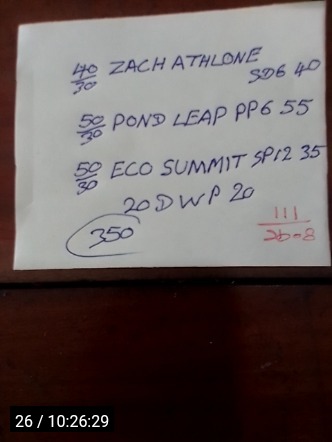 40/30 ZACH ATHLONE
SD6 40
50/30 POND LEAP PP6 55
50/30 ECO SUMMIT SP12 35
20 D W P 20
350
111
26 / 10:26:29